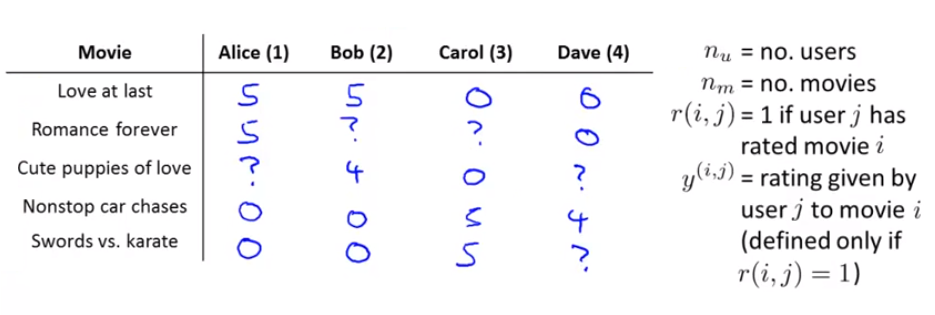 Movie Alice (1) Bob (2) Carol (3) Dave (4)
Love at last 5 5 0 0
Romance forever 5 ? ? 0
Cute puppies of love ? 4 0 ?
Nonstop car chases 0 0 5 4
Swords vs. karate 0 0 5 ?
n_u = no. users
n_m = no. movies
r(i, j) = 1 if user j has
rated movie i
y^(i,j) = rating given by
user j to movie i
(defined only if
r(i, j) = 1)